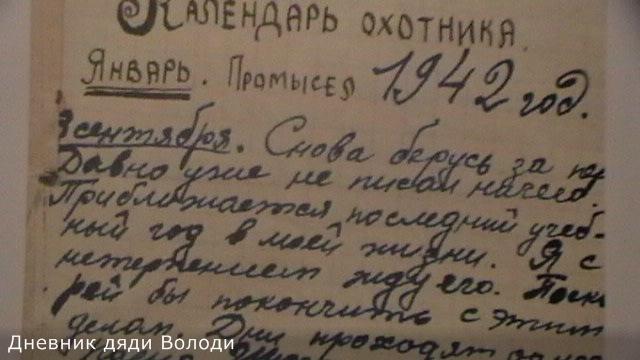 КАЛЕНДАРЬ ОХОТНИКА.
ЯНВАРЬ. ПРОМЫСЕЛ 1942 год.
сентября. Снова берусь за пер
Давно уже не писал ничего.
Приближается последний учеб-
ный год в моей жизни. Я с
нетерпением жду его. Поско
рей бы покончить с этим
делом. Дни проходят
Дневник дяди Володи